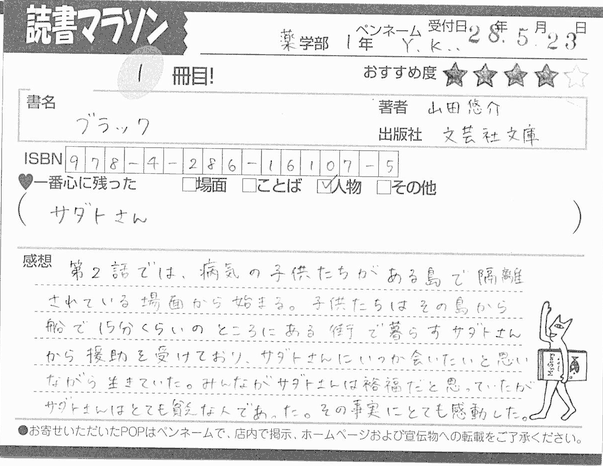 読書マラソン
薬学部 1年 ペンネーム Y.K.. 受付日 28年5月23日
1 冊目! おすすめ度 ★★★★☆
書名 ブラック
著者 山田悠介
出版社 文芸社文庫
ISBN 978-4-286-16107-5
♥一番心に残った □場面 □ことば ☑人物 □その他
(サダトさん)
感想 第2話では、病気の子供たちがある島で隔離
されている場面から始まる。子供たちはその島から
船で15分くらいのところにある街で暮らすサダトさん
から援助を受けており、サダトさんにいつか会いたいと思い
ながら生きていた。みんながサダトさんは裕福だと思っていたが
サダトさんはとても貧乏な人であった。その事実にとても感動した。
●お寄せいただいたPOPはペンネームで、店内で掲示、ホームページおよび宣伝物への転載をご了承ください。